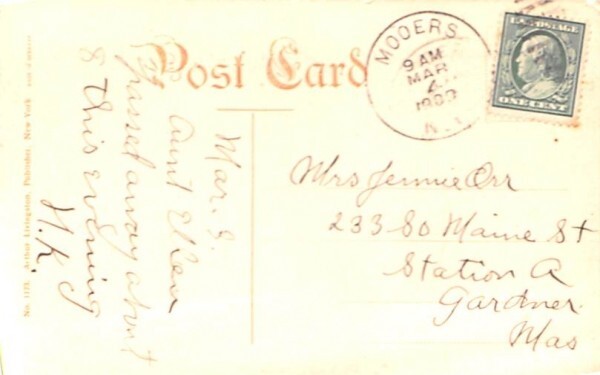 Post Card
MOOERS
9 AM
MAR
4
N.Y.
U.S. POSTAGE
ONE CENT
Mar. 3.
Aunt Ellen
passed away about
8 this evening
H.K.
Mrs Jennie Orr
233 So Maine St
Station A
Gardner
Mas
No. 1173. Arthur Livingston, Publisher, New York